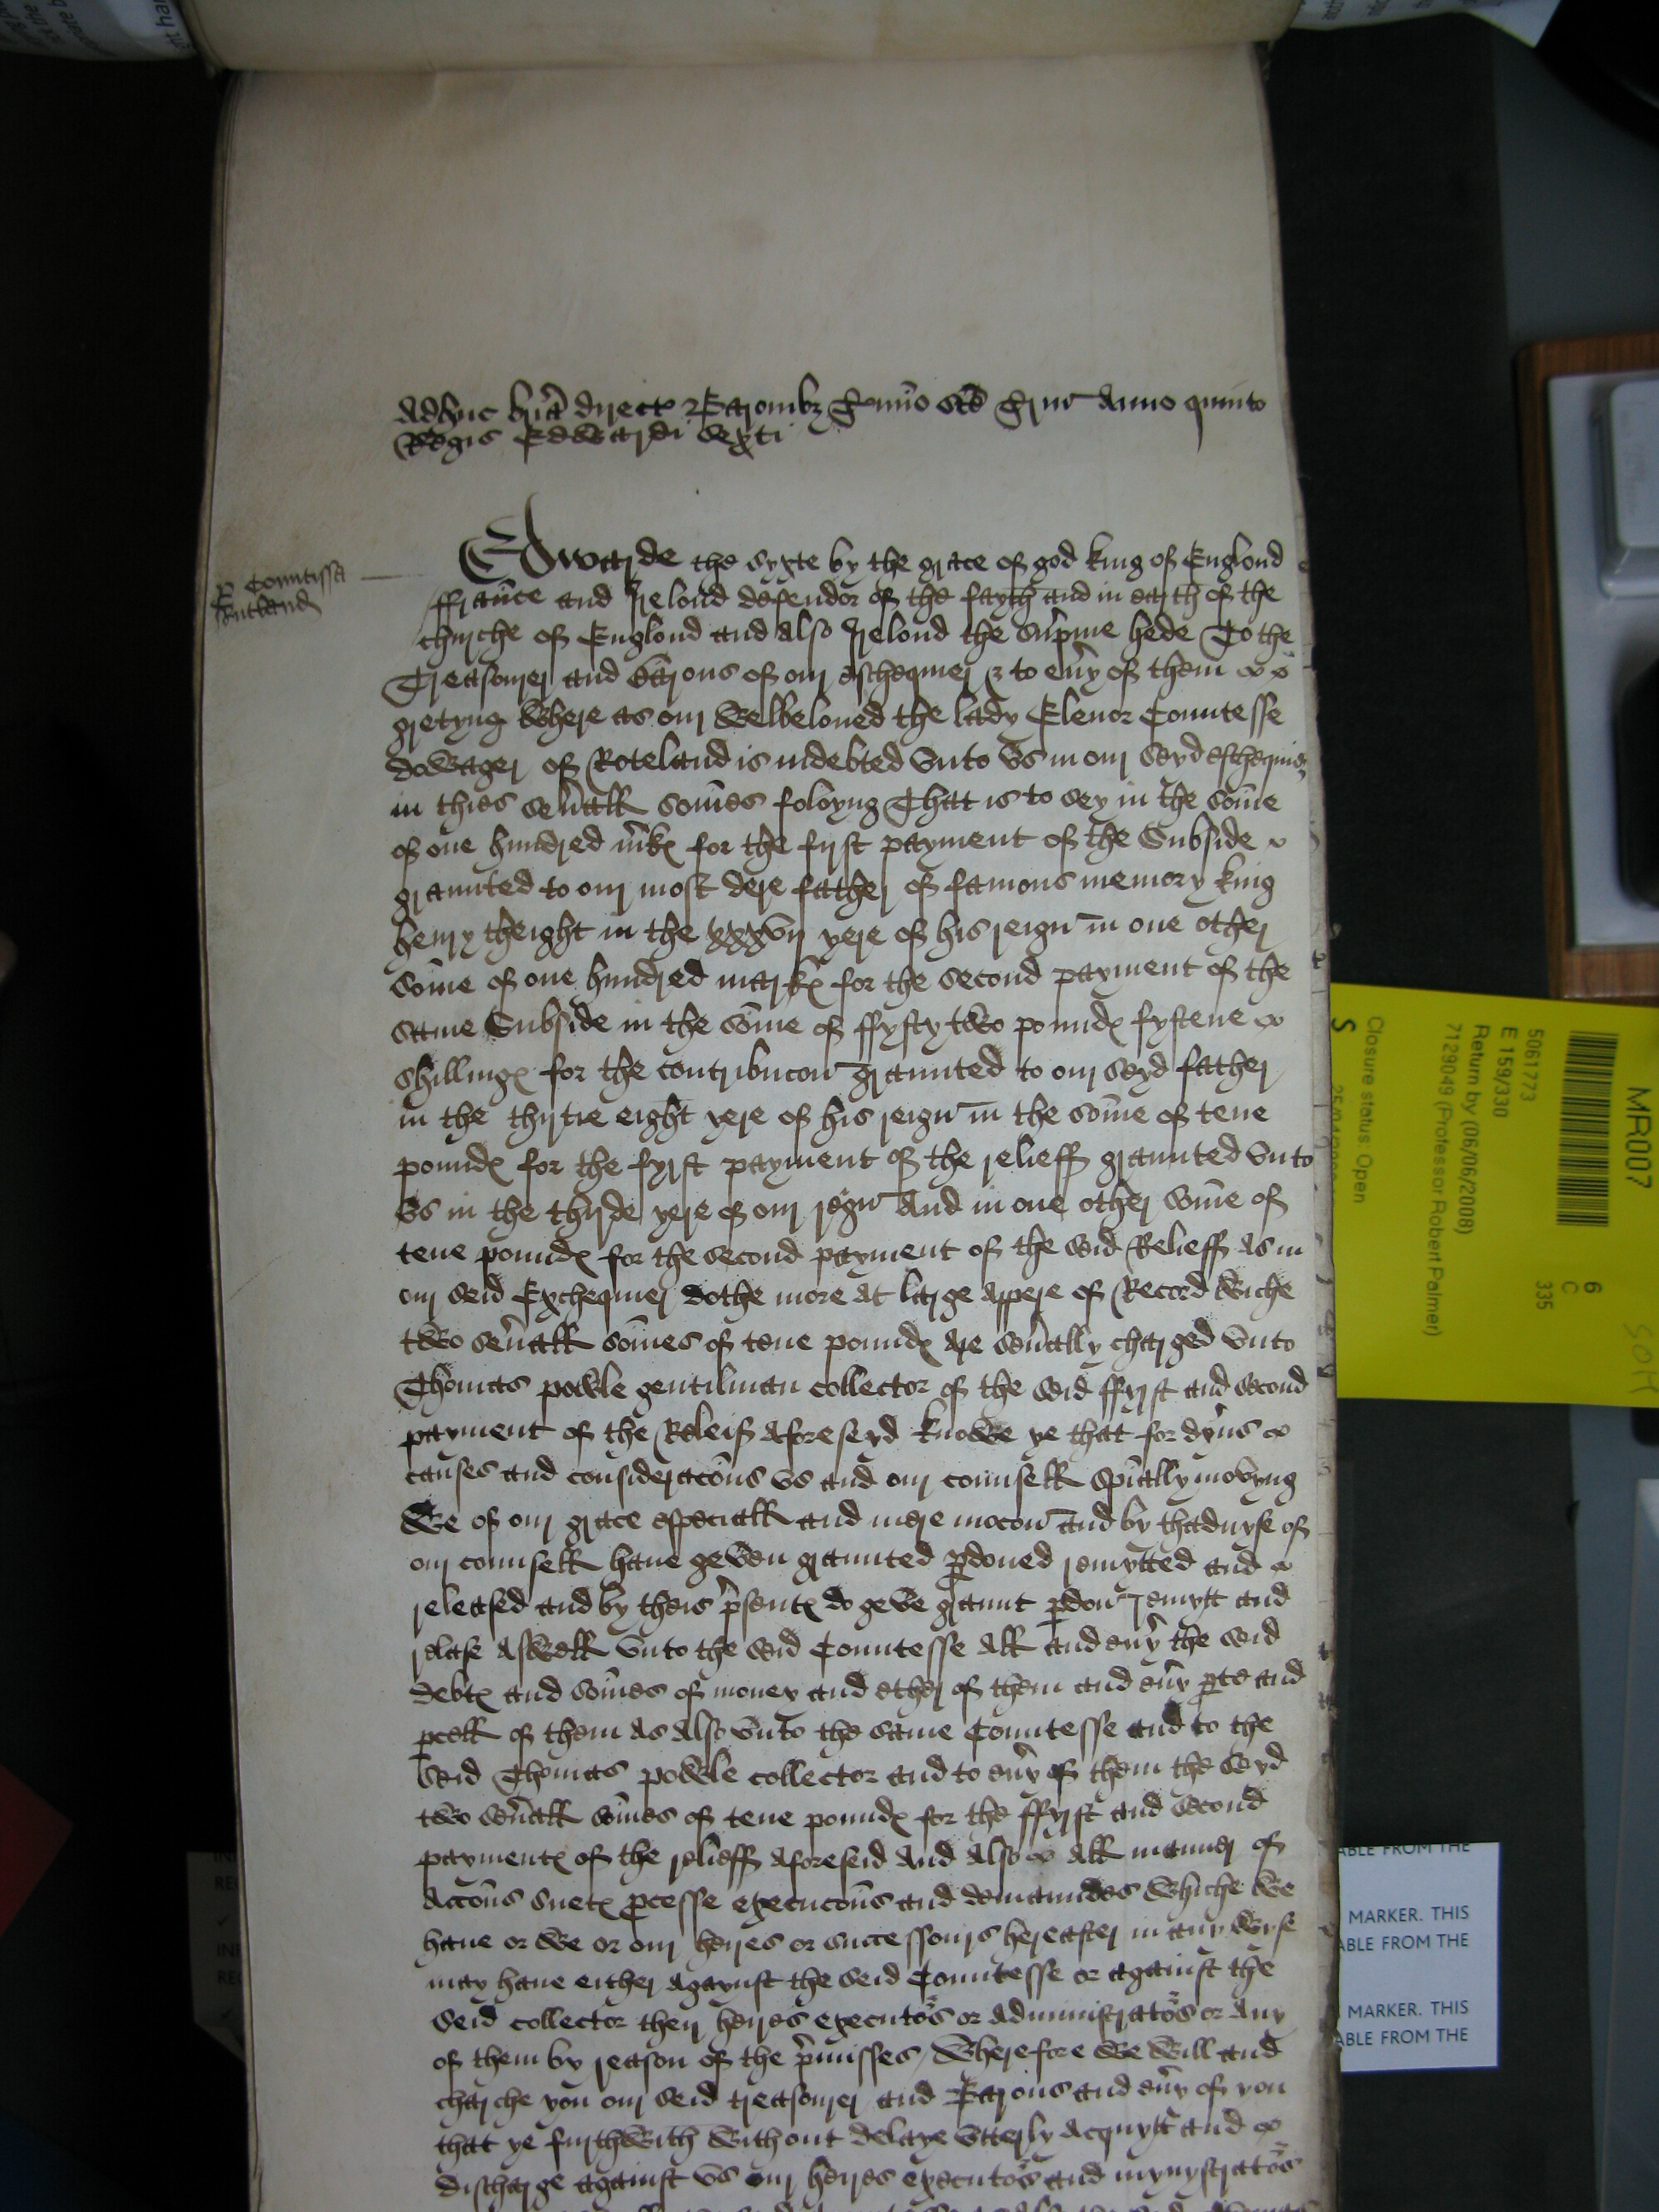 Adhuc bria direct Baronibz Termio Sci Hillar Anno quinto
Regis Edwardi Sexti
P Comitissa
Rutland
Edwarde the syxte by the grace of god king of Englond
ffraunce and Irelond defendor of the fayth and in earth of the
churche of Englond and also Irelond the supme hede To the
Treasourer and Barons of our eschequier & to eny of them
gretyng Where as our Welbeloued the lady Elenor Countesse
dowager of Roteland is indebted vnto vs in our seyd eschequier
in thies seuall somes foloyng That is to sey in the some
of one hundred mrkes for the fyrst payment of the Subside
graunted to our most dere father of famous memory king
henry theight in the xxxvij yere of his reign in one other
some of one hundred markes for the second payment of the
same Subside in the some of ffyfty two poundes fyftene
shillinges for the contribucon graunted to our seyd father
in the thyrtie eight yere of his reign in the some of tene
poundes for the fyrst payment of the relieff graunted vnto
vs in the thyrde yere of our reign And in one other some of
tene poundes for the second payment of the seid Relieff as in
our seid Exchequier dothe more at large appere of Record Wiche
two seuall somes of tene poundes are seually charged vnto
Thomas powle gentilman collector of the seid ffyrst and second
payment of the Releif aforeseyd knowe ye that for dyus
causes and consideracons vs and our counsell spially movyng
We of our grace especiall and mere mocon and by thaduyse of
our counsell haue geven graunted pdoned remytted and
released and by theis psentes do geve graunt pdon remytt and
relase aswell vnto the seid Countesse all and euy the seid
debtes and somes of money and ether of them and euy pte and
pcell of them as also vnto the same Countesse and to the
seid Thomas powle collector and to euy of them the seyd
two seuall somes of tene poundes for the ffyrst and second
paymentes of the relieff aforeseid And also all manner of
accons suetes pcesse execucons and demaundes Whiche We
haue or we or our heyres or successours hereafter in any wyse
may haue either agaynst the seid Countesse or against the
seid collector their heyres executors or administrators or any
of them by reason of the pmisses Wherefore we will and
charche you our seid treasourer and Barons and euy of you
that ye furthwith without delaye vtterly acquytt and
discharge against vs our heyres executors and mynystrators
MR007
5061773
E 159/330
Return by (06/06/2008)
7129049 (Professor Robert Palmer)
Closure status: Open
S
6
C
335
ABLE FROM THE
MARKER. THIS
ABLE FROM THE
MARKER. THIS
ABLE FROM THE